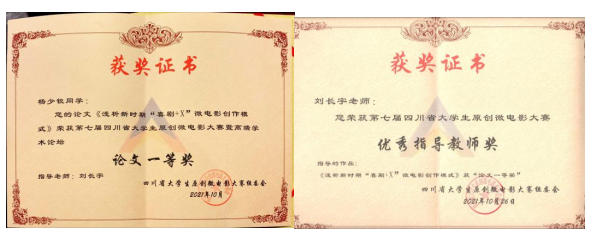 获奖证书
杨少牧同学：
您的论文《浅析新时期“喜剧+X”微电影创作模
式》荣获第七届四川省大学生原创微电影大赛暨高端学
术论坛
论文一等奖
指导老师：刘长宇
四川省大学生原创微电影大赛组委会
2021年10月
获奖证书
刘长宇老师：
您荣获第七届四川省大学生原创微电影大赛
优秀指导教师奖
指导的作品：
《浅析新时期“喜剧+X”微电影创作模式》获“论文一等奖”
四川省大学生原创微电影大赛组委会
2021年10月26日